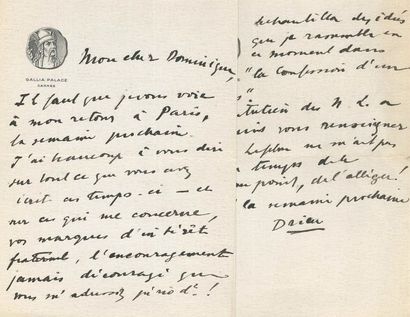 GALLIA PALACE
CANNES
Mon cher Dominique,
Il faut que je vous voie
à mon retour à Paris,
la semaine prochaine.
J'ai beaucoup à vous dire
sur tout ce que vous avez
écrit ces temps-ci — et
sur ce qui me concerne,
vos marques d'intérêt
fraternel, l'encouragement
jamais découragé que
vous m'adressez
échantillon des idées
que je rassemble en
ce moment dans
"la Confession d'un
"
des N. L. a
vous renseigner
ne m'ait pas
temps de le
au point, de l'alléger!
la semaine prochaine
Drieu